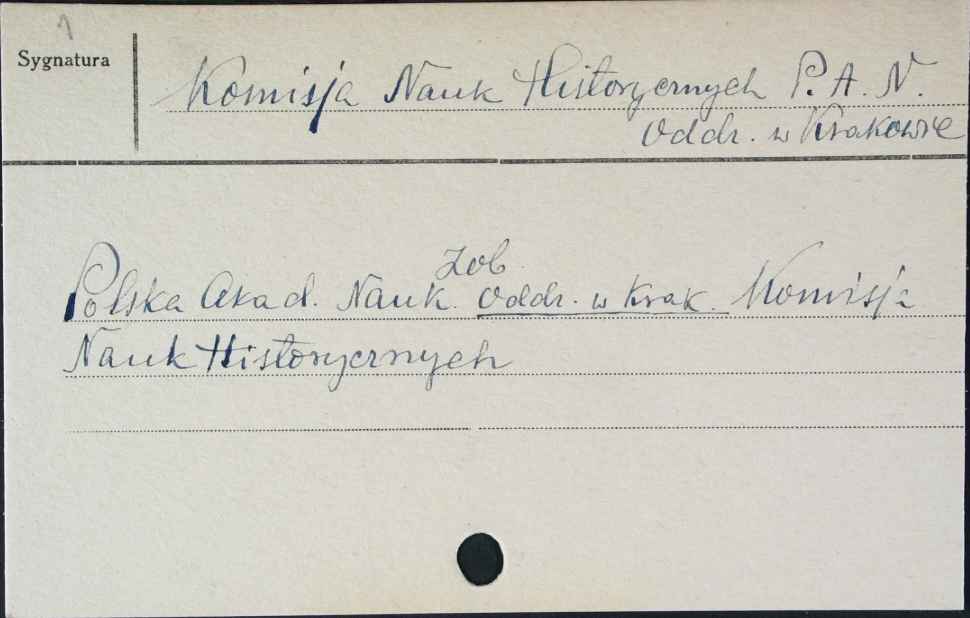 1
Sygnatura
Komisja Nauk Historycznych P. A. N.
Oddz. w Krakowie
Zob.
Polska Akad. Nauk. Oddz. w Krak. Komisja
Nauk Historycznych